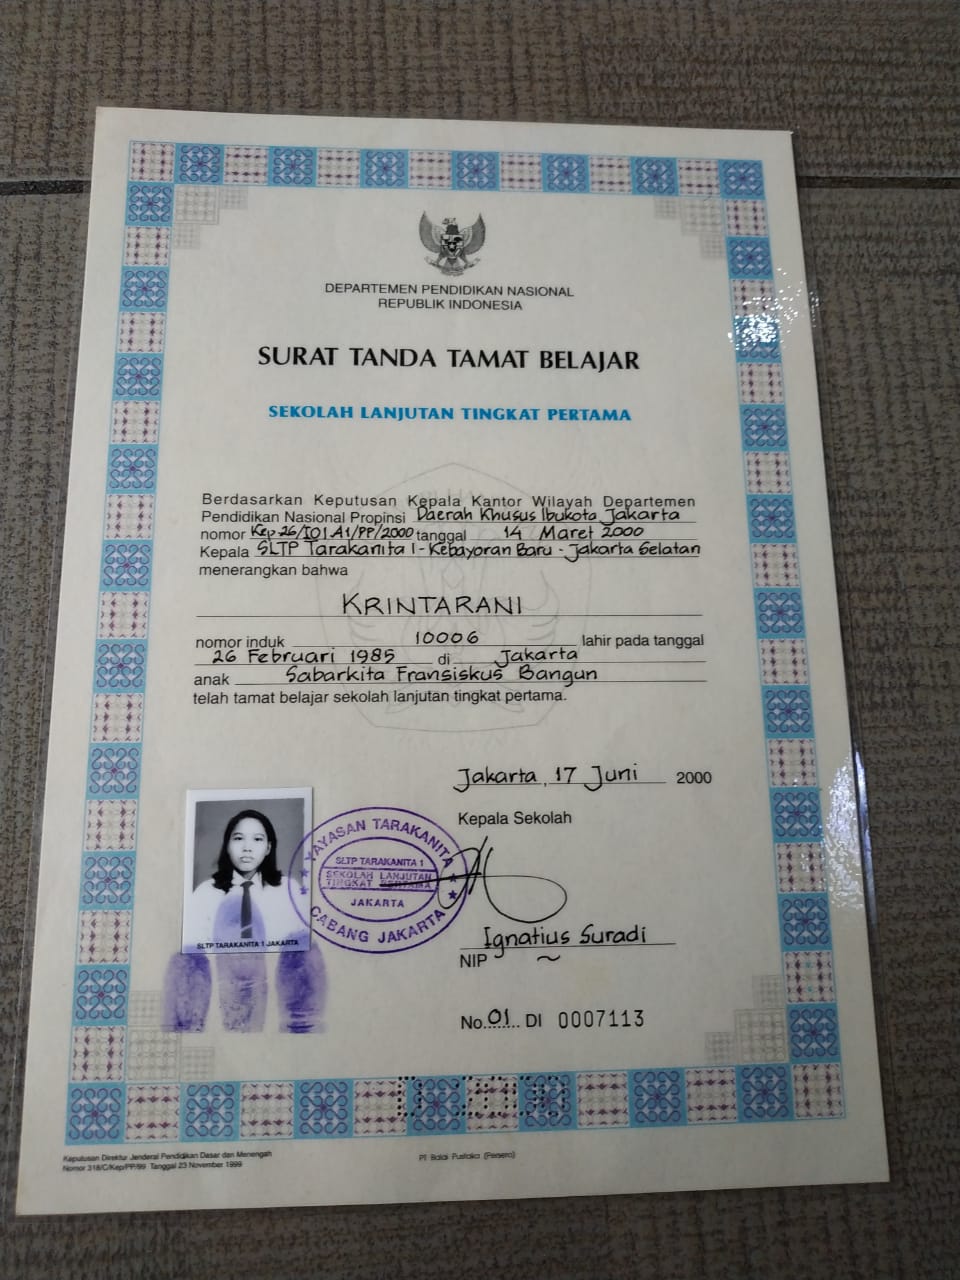 DEPARTEMEN PENDIDIKAN NASIONAL
REPUBLIK INDONESIA
SURAT TANDA TAMAT BELAJAR
SEKOLAH LANJUTAN TINGKAT PERTAMA
Berdasarkan Keputusan Kepala Kantor Wilayah Departemen
Pendidikan Nasional Propinsi Daerah Khusus Ibukota Jakarta
nomor Kep 26/I01.A1/PP/2000 tanggal 14 Maret 2000
Kepala SLTP Tarakanita I - Kebayoran Baru - Jakarta Selatan
menerangkan bahwa
KRINTARANI
nomor induk 10006 lahir pada tanggal
26 Februari 1985 di Jakarta
anak Sabarkita Fransiskus Bangun
telah tamat belajar sekolah lanjutan tingkat pertama.
Jakarta, 17 Juni 2000
Kepala Sekolah
YAYASAN TARAKANITA
SLTP TARAKANITA 1
SEKOLAH LANJUTAN
TINGKAT PERTAMA
JAKARTA
CABANG JAKARTA
SLTP TARAKANITA 1 JAKARTA
Ignatius Suradi
NIP ~
No. 01 DI 0007113
Keputusan Direktur Jenderal Pendidikan Dasar dan Menengah
Nomor 318/C/Kep/PP/99 Tanggal 23 November 1999
PT Balai Pustaka (Persero)